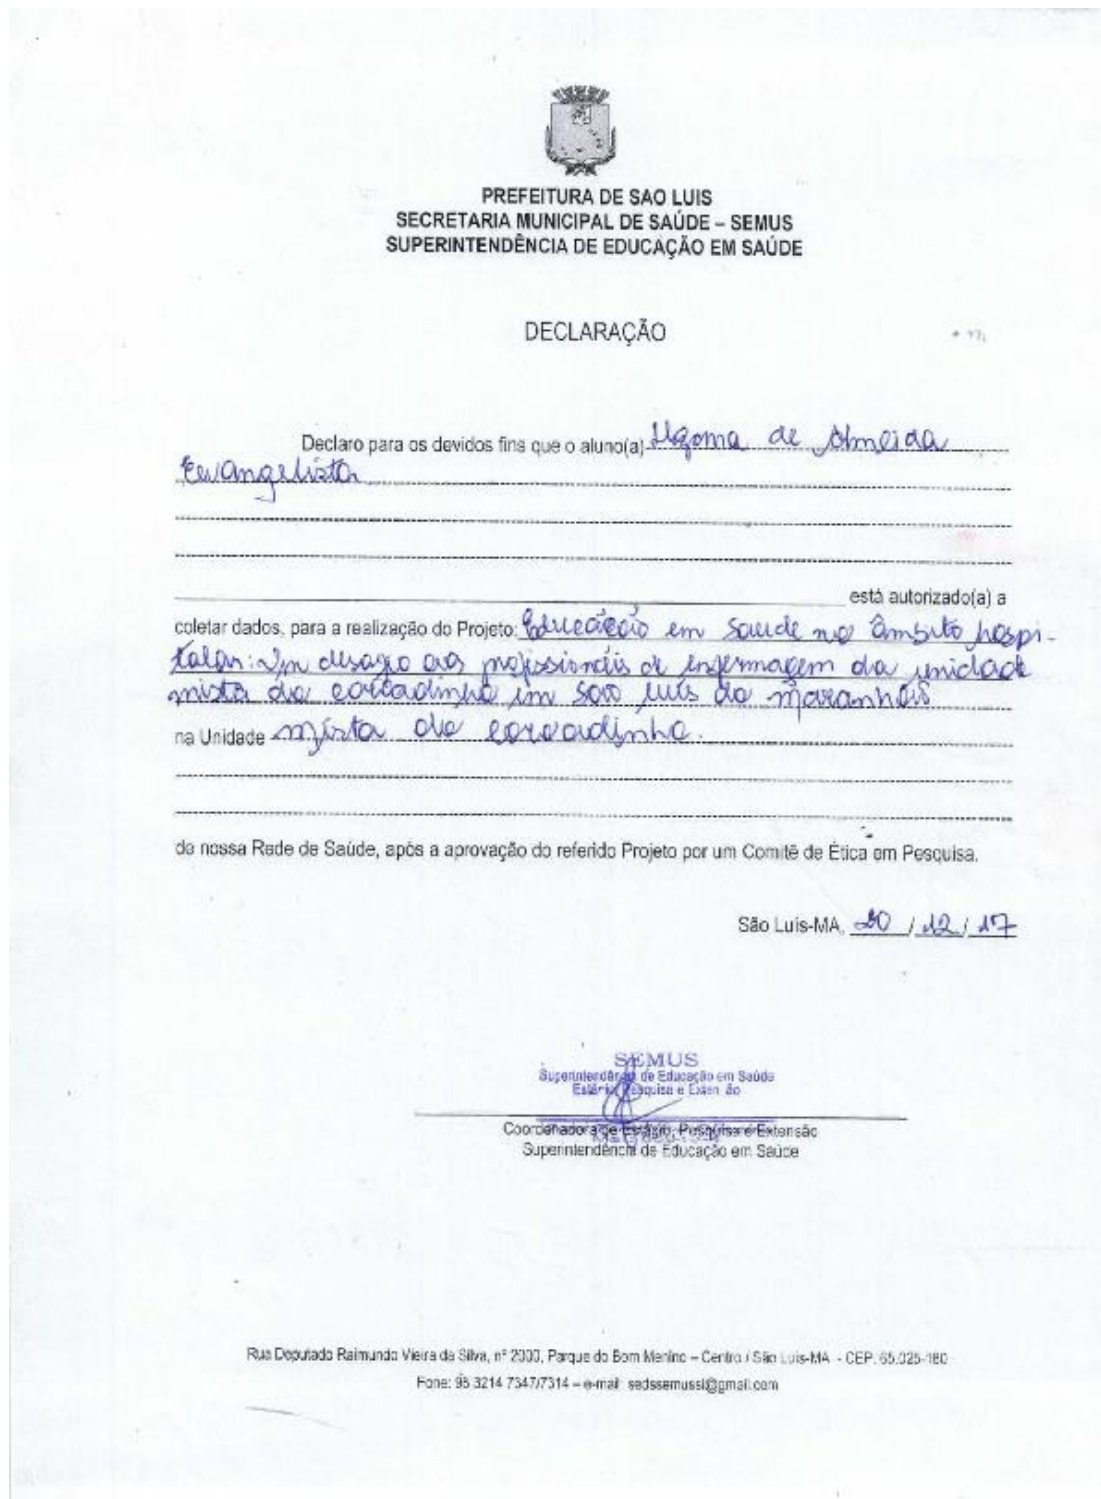 PREFEITURA DE SAO LUIS
SECRETARIA MUNICIPAL DE SAÚDE – SEMUS
SUPERINTENDÊNCIA DE EDUCAÇÃO EM SAÚDE
DECLARAÇÃO
Declaro para os devidos fins que o aluno(a) de Almeida
Evangelista
está autorizado(a) a
coletar dados, para a realização do Projeto: Educação em saude no âmbito hospi-
talar: Um desafio aos profissionais de enfermagem da unidade
mista do coroadinho em são luis do maranhão
na Unidade mista do coroadinho.
de nossa Rede de Saúde, após a aprovação do referido Projeto por um Comitê de Ética em Pesquisa.
São Luís-MA, 20 / 12 / 17
SEMUS
Superintendência de Educação em Saúde
Estágio Pesquisa e Extensão
Coordenadora de Estágio, Pesquisa e Extensão
Superintendência de Educação em Saúde
Rua Deputado Raimundo Vieira da Silva, nº 2000, Parque do Bom Menino – Centro / São Luis-MA - CEP. 65.025-180
Fone: 98 3214 7347/7314 – e-mail: sedssemussl@gmail.com